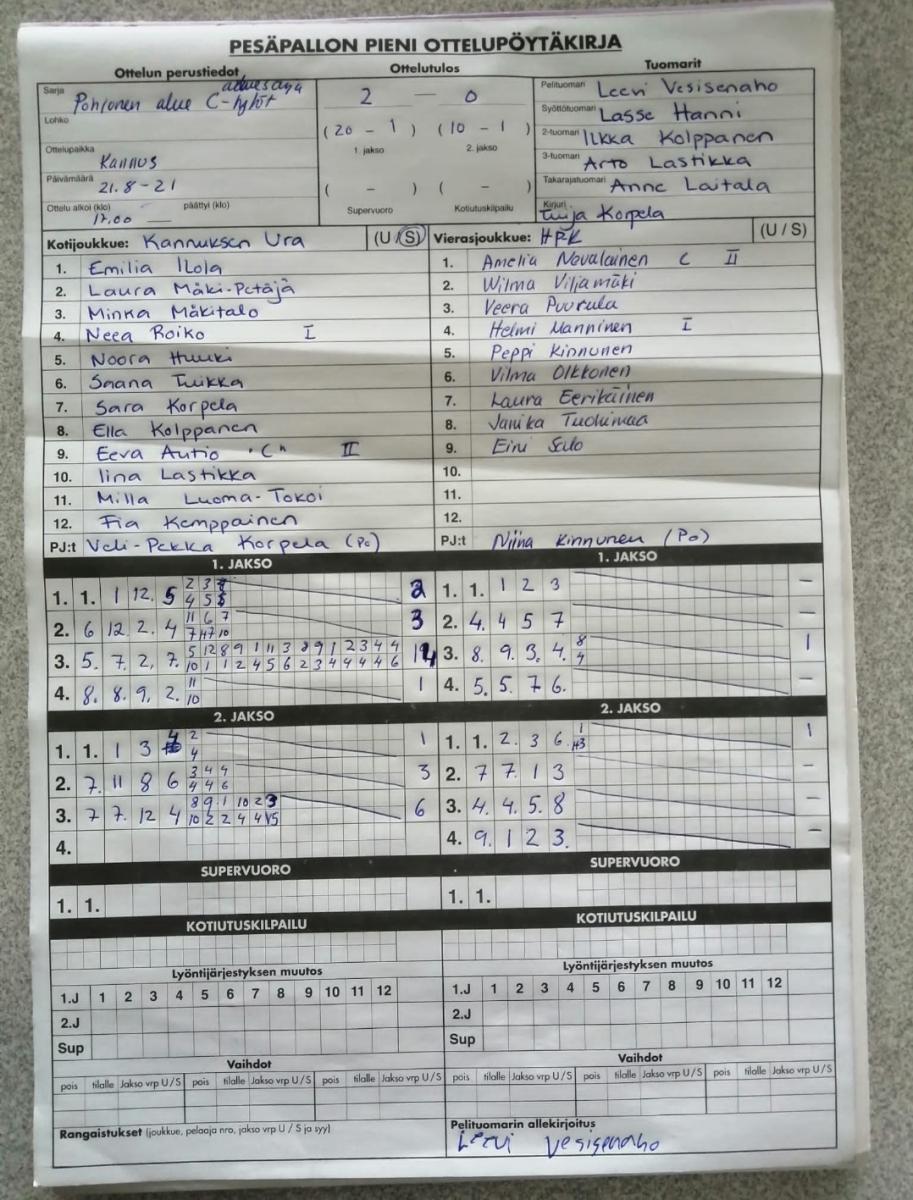 PESÄPALLON PIENI OTTELUPÖYTÄKIRJA
Ottelun perustiedot
Ottelutulos
Tuomarit
Sarja Pohjonen alue C-tytöt
Lohko
Ottelupaikka Kannus
Päivämäärä 21.8-21
Ottelu alkoi (klo) 17.00 päättyi (klo)
2 — 0
(20 - 1) (10 - 1)
1. jakso 2. jakso
( - ) ( - )
Supervuoro Kotiutuskilpailu
Pelituomari Leevi Vesisenaho
Syöttötuomari Lasse Hanni
2-tuomari Ilkka Kolppanen
3-tuomari Arto Lastikka
Takarajatuomari Anne Laitala
Kirjuri Tuija Korpela
Kotijoukkue: Kannuksen Ura (U/S)
1. Emilia Ilola
2. Laura Mäki-Petäjä
3. Minka Mäkitalo
4. Neea Roiko I
5. Noora Huuki
6. Saana Tuikka
7. Sara Korpela
8. Ella Kolppanen
9. Eeva Autio "C" II
10. Iina Lastikka
11. Milla Luoma-Tokoi
12. Fia Kemppainen
PJ:t Veli-Pekka Korpela (Po)
Vierasjoukkue: HPK (U/S)
1. Amelia Nevalainen C II
2. Wilma Viljamäki
3. Veera Puurula
4. Helmi Manninen I
5. Peppi Kinnunen
6. Vilma Olkkonen
7. Laura Eerikäinen
8. Janika Tuohimaa
9. Eini Salo
10.
11.
12.
PJ:t Niina Kinnunen (Po)
1. JAKSO
1. 1. 1 12. 5 2 3 4 5 2
2. 6 12. 2. 4 11 6 7 10 3
3. 5. 7. 2, 7. 5 12 8 9 1 11 3 8 9 1 2 3 4 4
10 1 1 2 4 5 6 2 3 4 4 4 4 6 14
4. 8. 8. 9, 2. 11 10 1
1. JAKSO
1. 1. 1 2 3 –
2. 4. 4 5 7 –
3. 8. 9. 3. 4. 8 4 1
4. 5. 5. 7 6. –
2. JAKSO
1. 1. 1 3 4 2 4 1
2. 7. 11 8 6 3 4 4
4 4 6 3
3. 7 7. 12 4 8 9 1 10 2 3
10 2 2 4 4 6
4.
2. JAKSO
1. 1. 2. 3 6. 1 1
2. 7 7. 1 3 –
3. 4. 4. 5. 8 –
4. 9. 1 2 3. –
SUPERVUORO
1. 1.
SUPERVUORO
1. 1.
KOTIUTUSKILPAILU
KOTIUTUSKILPAILU
Lyöntijärjestyksen muutos
1.J 1 2 3 4 5 6 7 8 9 10 11 12
2.J
Sup
Lyöntijärjestyksen muutos
1.J 1 2 3 4 5 6 7 8 9 10 11 12
2.J
Sup
Vaihdot
pois tilalle Jakso vrp U/S pois tilalle Jakso vrp U/S pois tilalle Jakso vrp U/S
Vaihdot
pois tilalle Jakso vrp U/S pois tilalle Jakso vrp U/S pois tilalle Jakso vrp U/S
Rangaistukset (joukkue, pelaaja nro, jakso vrp U / S ja syy)
Pelituomarin allekirjoitus
Leevi Vesisenaho